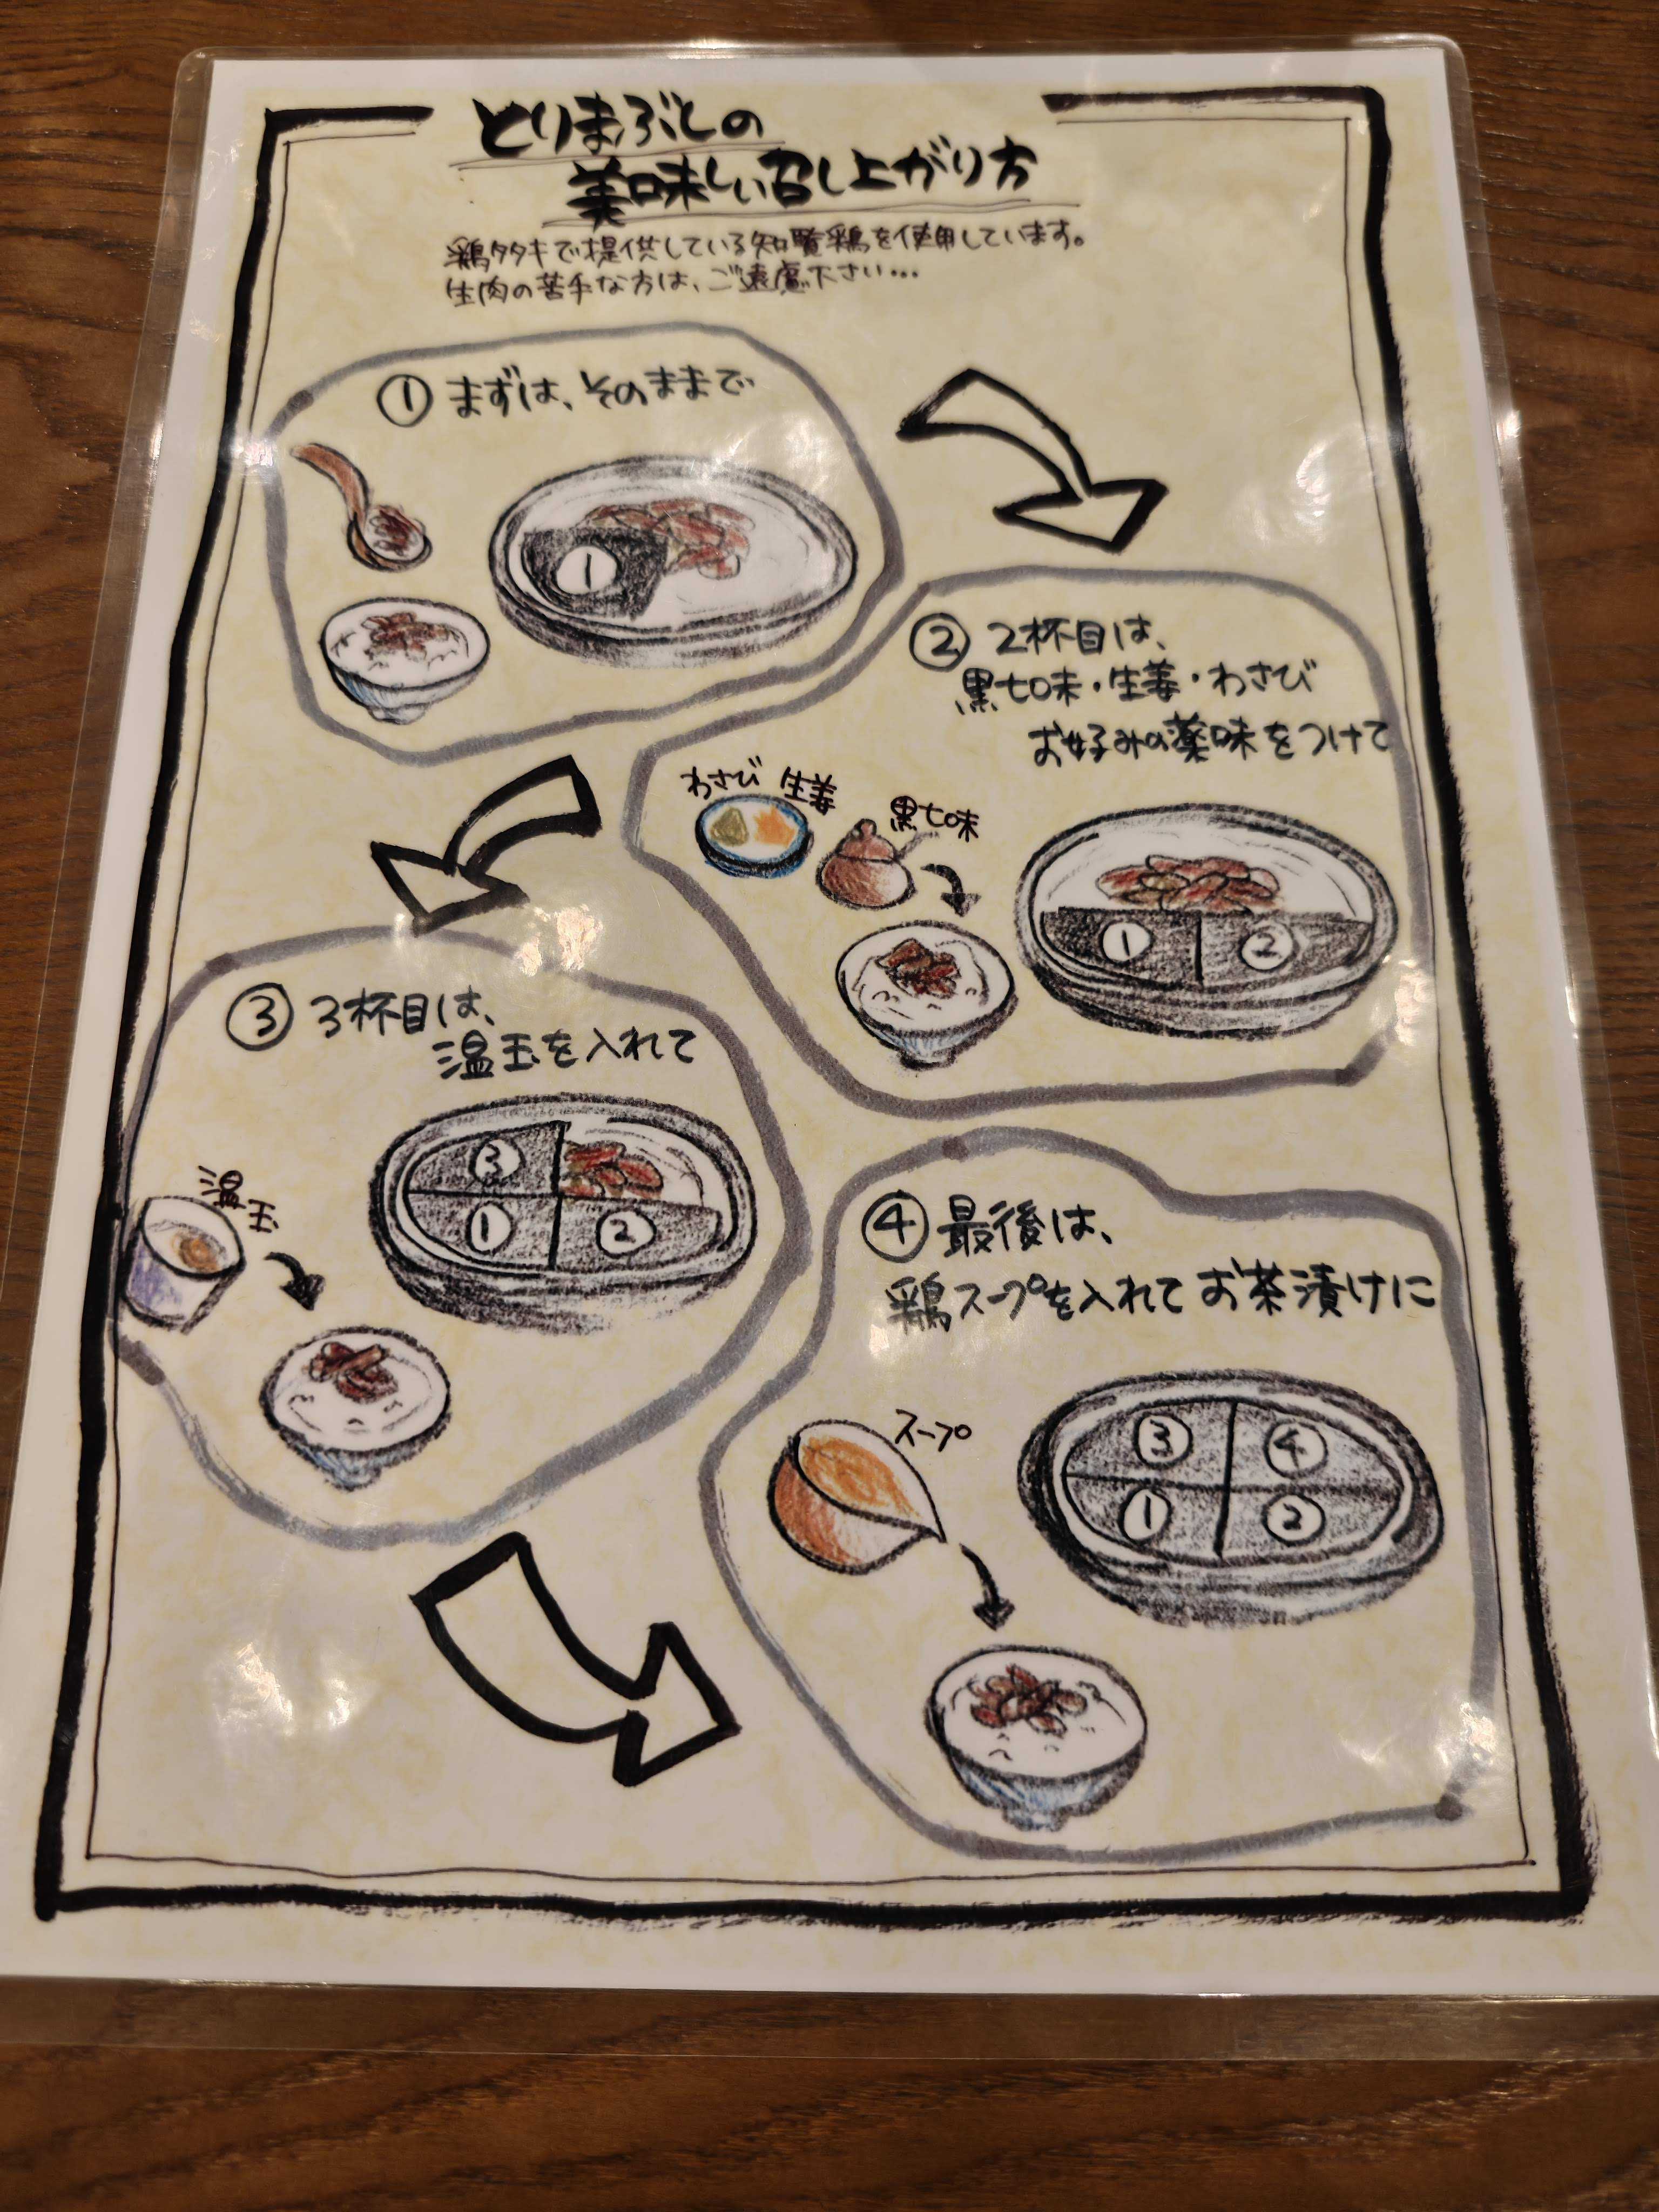 とりまぶしの
美味しい召し上がり方
鶏タタキで提供している知覧鶏を使用しています。
生肉の苦手な方は、ご遠慮下さい…
① まずは、そのままで
1
② 2杯目は、
黒七味・生姜・わさび
お好みの薬味をつけて
わさび 生姜
黒七味
1 2
③ 3杯目は、
温玉を入れて
温玉
3
1 2
④ 最後は、
鶏スープを入れてお茶漬けに
スープ
3 4
1 2